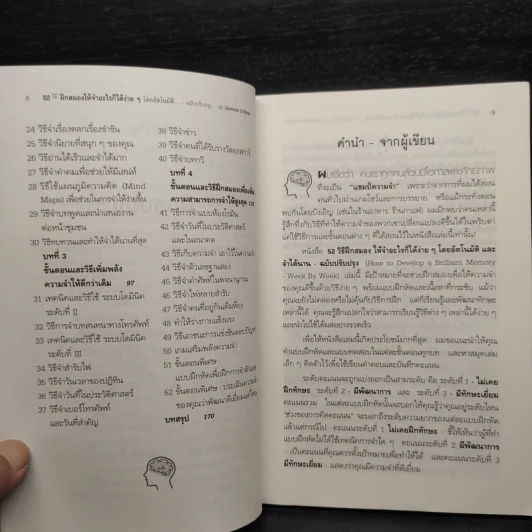 8 52 วิธี ฝึกสมองให้จำอะไรก็ได้ง่าย ๆ โดยอัตโนมัติ... - ฉบับปรับปรุง by Dominic O'Brien
24 วิธีจำเรื่องตลกเรื่องขำขัน
25 วิธีจำนิยายที่สนุก ๆ ของคุณ
26 วิธีอ่านได้เร็วและจำได้มาก
27 วิธีจำคำคมเพื่อช่วยให้มีเสน่ห์
28 วิธีใช้แผนภูมิความคิด (Mind
Maps) เพื่อช่วยในการจำง่ายขึ้น
29 วิธีจำบทพูดและนำเสนองาน
ต่อหน้าชุมชน
30 วิธีทบทวนและทำให้จำได้นานที่สุด
บทที่ 3
ขั้นตอนและวิธีเพิ่มพลัง
ความจำให้ดีกว่าเดิม 97
31 เทคนิคและวิธีใช้ ระบบโดมินิค
ระดับที่ II
32 วิธีการจำบทสนทนาทางโทรศัพท์
33 เทคนิคและวิธีใช้ ระบบโดมินิค
ระดับที่ III
34 วิธีจำสำรับไพ่
35 วิธีจำวันเวลาของปฏิทิน
36 วิธีจำวันที่ในประวัติศาสตร์
37 วิธีจำเบอร์โทรศัพท์
และวันที่สำคัญ
38 วิธีจำข่าว
39 วิธีจำคนที่ได้รับรางวัลออสการ์
40 วิธีจำบทกวี
บทที่ 4
ขั้นตอนและวิธีฝึกสมองเพื่อเพิ่ม
ความสามารถการจำให้สูงสุด
41 วิธีการจำแบบห้องโรมัน
42 วิธีจำวันที่ในประวัติศาสตร์
และในอนาคต
43 วิธีเก็บความจำ เอาไว้ใน
44 วิธีจำตัวเลขฐานสอง
45 วิธีจำคำศัพท์ในพจนานุกรม
46 วิธีจำไพ่หลายสำรับ
47 วิธีจำคนที่อยู่กันเต็มห้อง
48 ทำให้ร่างกายแข็งแรง
49 วิธีเอาชนะการแข่งขันตอบปัญหา
50 เกมเสริมพลังความจำ
51 ขั้นตอนพิเศษ
แบบฝึกหัดเพื่อฝึกการจำตัวเลข
52 ขั้นตอนพิเศษ ประเมินความจำ
ของคุณว่าพัฒนาดีเยี่ยมแค่ไหน
บทสรุป 170
คำนำ - จากผู้เขียน
ผมเชื่อว่า คนเราทุกคนล้วนมีโอกาสและศักยภาพ
ที่จะเป็น "แชมป์ความจำ" เพราะว่าจากการที่ผมได้สอน
คนทั่วไปผ่านเกมโชว์และการบรรยาย หรือแม้กระทั่งตอน
พบกันโดยบังเอิญ (เช่นในร้านอาหาร ร้านกาแฟ) ผมมักพบว่าคนเหล่านี้
รู้สึกทึ่งกับวิธีที่ทำให้ความจำของพวกเขาเปลี่ยนแปลงดีขึ้นได้ในพริบตา
แค่ใช้วิธีการและขั้นตอนต่าง ๆ ที่ได้สอนไว้ในหนังสือเล่มนี้เท่านั้น!
หนังสือ 52 วิธีฝึกสมอง ให้จำอะไรก็ได้ง่าย ๆ โดยอัตโนมัติ และ
จำได้นาน - ฉบับปรับปรุง (How to Develop a Brilliant Memory
- Week By Week) เล่มนี้ มีเป้าหมายที่จะช่วยฝึกสมองเพื่อให้ความจำ
ของคุณดีขึ้นด้วยวิธีง่าย ๆ พร้อมแบบฝึกหัดและเนื้อหาที่กระชับ แม้ว่า
คุณจะยังไม่คล่องหรือไม่คุ้นกับวิธีการฝึก แต่ที่เรียนรู้และพัฒนาทักษะ
เหล่านี้ได้ คุณจะรู้สึกแปลกใจว่าสามารถเรียนรู้วิธีต่าง ๆ เหล่านี้ได้ง่าย ๆ
และนำไปใช้ได้ผลอย่างรวดเร็ว
เพื่อให้หนังสือเล่มนี้เกิดประโยชน์มากที่สุด ผมขอแนะนำให้คุณ
ทำแบบฝึกหัดและแบบทดสอบในแต่ละขั้นตอนทุกบท และหาสมุดเล่ม
เล็ก ๆ ติดตัวไว้เพื่อใช้เขียนคำตอบและบันทึกคะแนน
ระดับคะแนนจะถูกแบ่งออกเป็นสามระดับ คือ ระดับที่ 1 - ไม่เคย
ฝึกทักษะ ระดับที่ 2 - มีพัฒนาการ และ ระดับที่ 3 - มีทักษะเยี่ยม
คะแนนรวม ในแต่ละแบบฝึกหัดนั้นจะบอกให้คุณรู้ว่าคุณอยู่ระดับไหน
'ช่วงของการคิดคะแนน' จะบอกถึงระดับความยากของแต่ละแบบฝึกหัด
แล้วแต่กรณีไป คะแนนระดับที่ 1 ไม่เคยฝึกทักษะ - ชี้ให้เห็นว่าผู้ที่ทำ
แบบฝึกหัดไม่ได้ใช้เทคนิคการจำใด ๆ คะแนนระดับที่ 2 มีพัฒนาการ
- เป็นคะแนนที่คุณควรตั้งเป้าหมายเพื่อทำให้ได้ และคะแนนระดับที่ 3
มีทักษะเยี่ยม - แสดงว่าคุณมีความจำที่ดีเยี่ยม